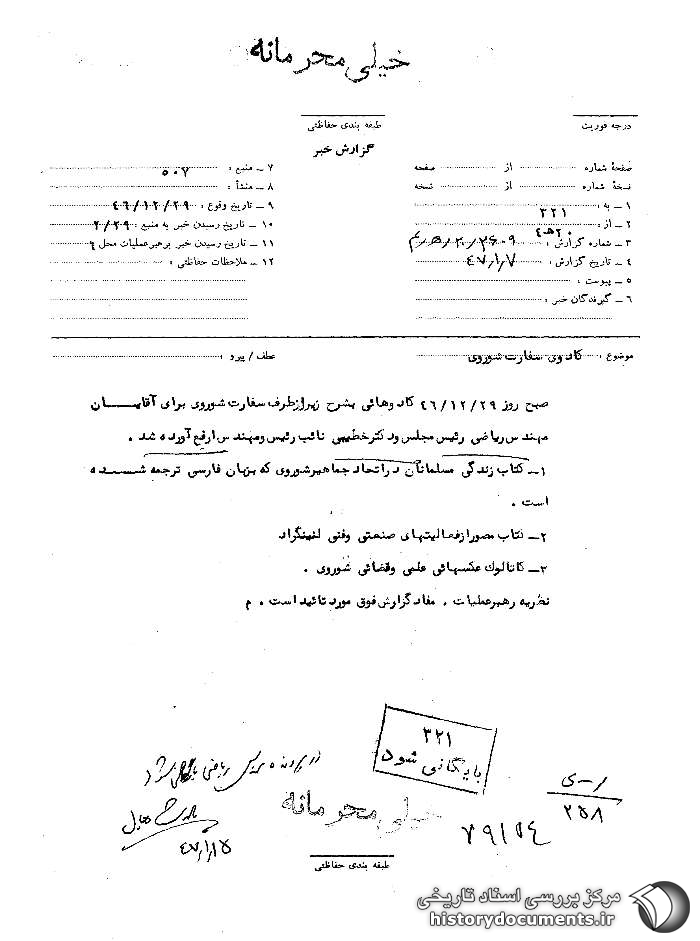 خیلی محرمانه
درجه فوریت
طبقه بندی حفاظتی
گزارش خبر
صفحهٔ شماره از صفحه
نسخهٔ شماره از نسخه
۱ ـ به : ۳۲۱
۲ ـ از : ۲۰ ه‍ ۴
۳ ـ شماره گزارش :
۴ ـ تاریخ گزارش : ۴۷/۱/۷
۵ ـ پیوست :
۶ ـ گیرندگان خبر :
۷ ـ منبع : ۵۰۷
۸ ـ منشأ :
۹ ـ تاریخ وقوع : ۴۶/۱۲/۲۹
۱۰ ـ تاریخ رسیدن خبر به منبع : ۲/۲۹
۱۱ ـ تاریخ رسیدن خبر برهبرعملیات محل
۱۲ ـ ملاحظات حفاظتی :
موضوع : کادوی سفارت شوروی
عطف / پیرو :
صبح روز ۴۶/۱۲/۲۹ کادوهائی بشرح زیرازطرف سفارت شوروی برای آقایـــان
مهندس ریاضی رئیس مجلس ودکترخطیبی نائب رئیس ومهندس ارفع آورده شد .
۱ـ کتاب زندگی مسلمانان دراتحاد جماهیرشوروی که بزبان فارسی ترجمه شـــده
است .
۲ـ کتاب مصورازفعالیتهای صنعتی وفنی لنینگراد
۳ـ کاتالوک عکسهائی علمی وفضائی شوروی .
نظریه رهبرعملیات . مفاد گزارش فوق مورد تائید است . م
۳۲۱
بایگانی شود
در پرونده مهندس ریاضی بایگانی شود
۴۷/۱/۱۵
خیلی محرمانه
۲۵۸
۷۹۱۵۴
طبقه بندی حفاظتی
مرکز بررسی اسناد تاریخی
historydocuments.ir